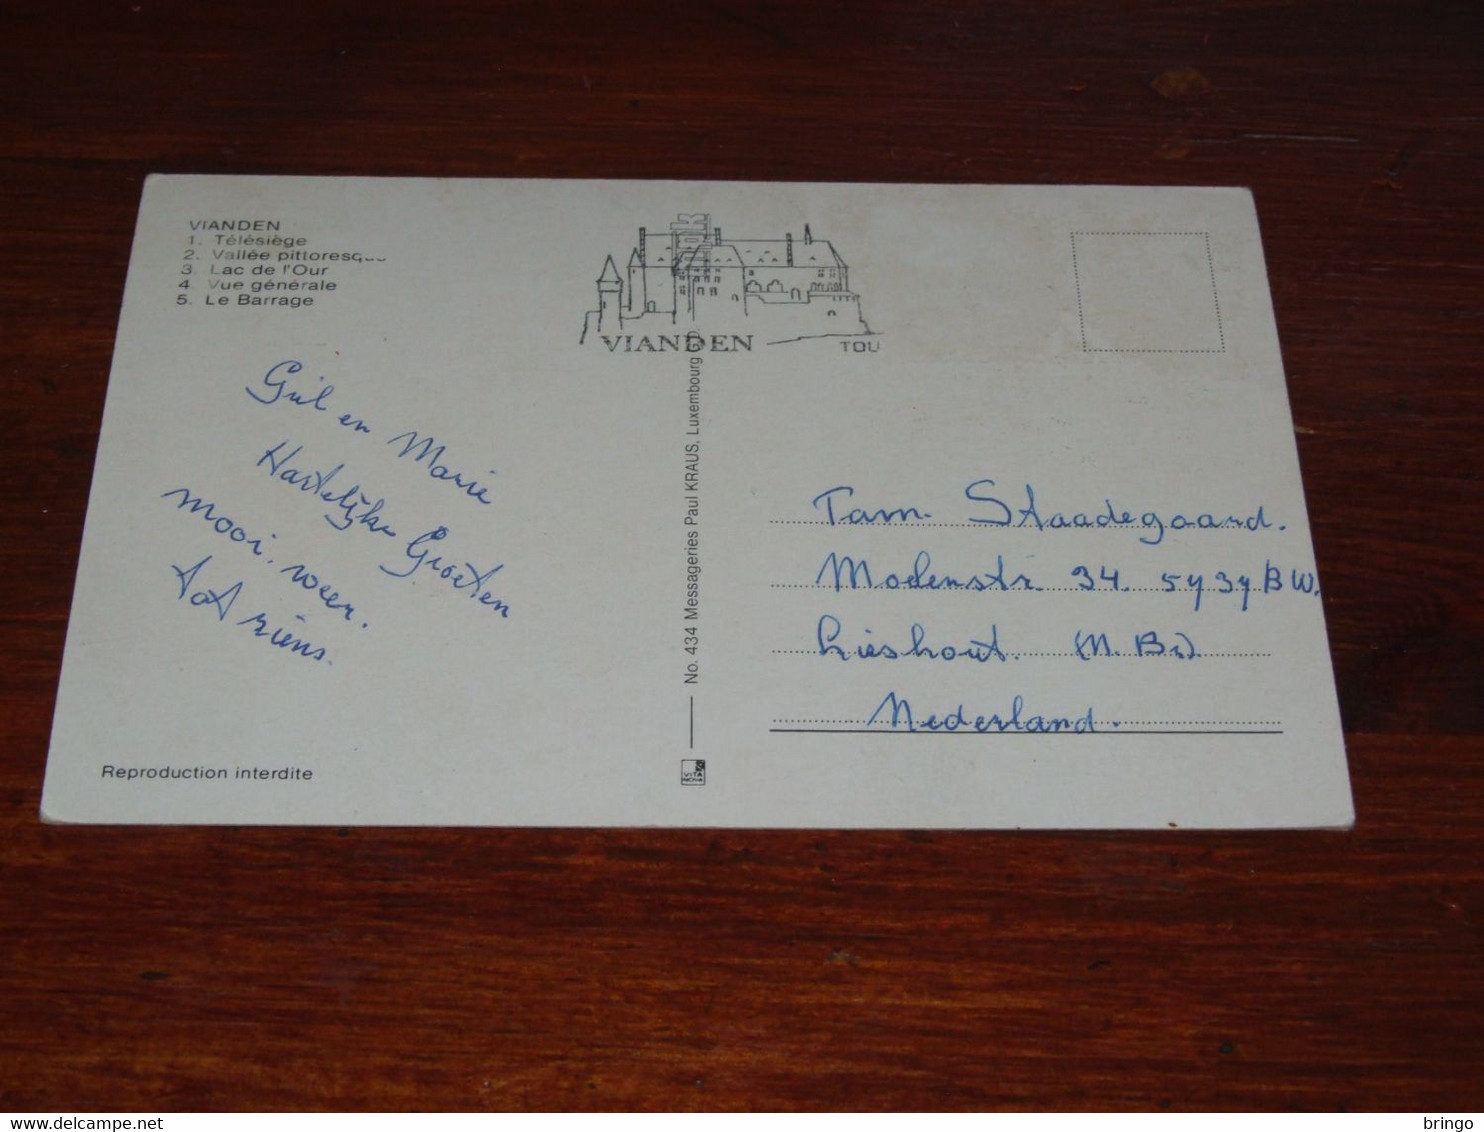 VIANDEN
1. Télésiège
2. Vallée pittoresque
3. Lac de l'Our
4. Vue générale
5. Le Barrage
VIANDEN
TOU
Giel en Marie
Hartelijke Groeten
mooi weer.
tot ziens.
Reproduction interdite
No. 434 Messageries Paul KRAUS, Luxembourg G.D.
VITA
NOVA
Fam. Staadegaard.
Molenstr 34. 5737 BW.
Lieshout. (N. Br.)
Nederland.
delcampe.net
bringo